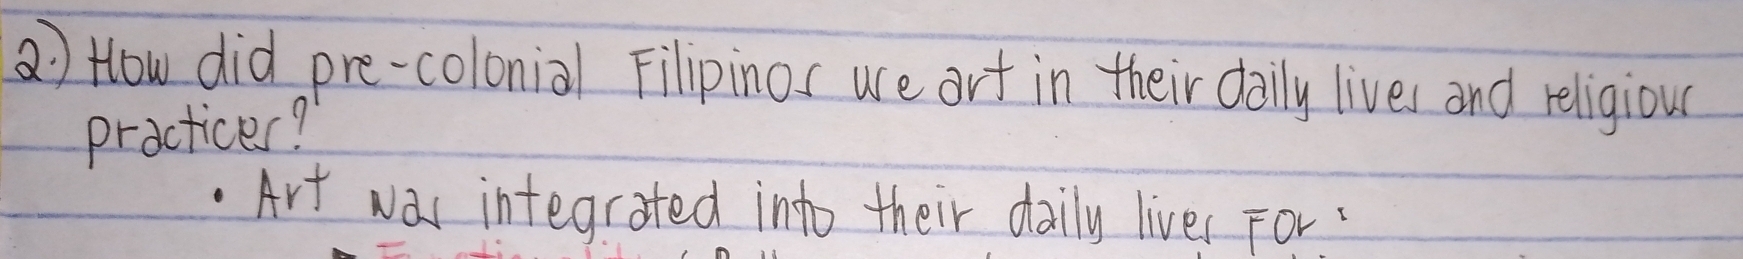 2.) How did pre-colonial Filipinos use art in their daily lives and religious
practices?
• Art was integrated into their daily lives For: